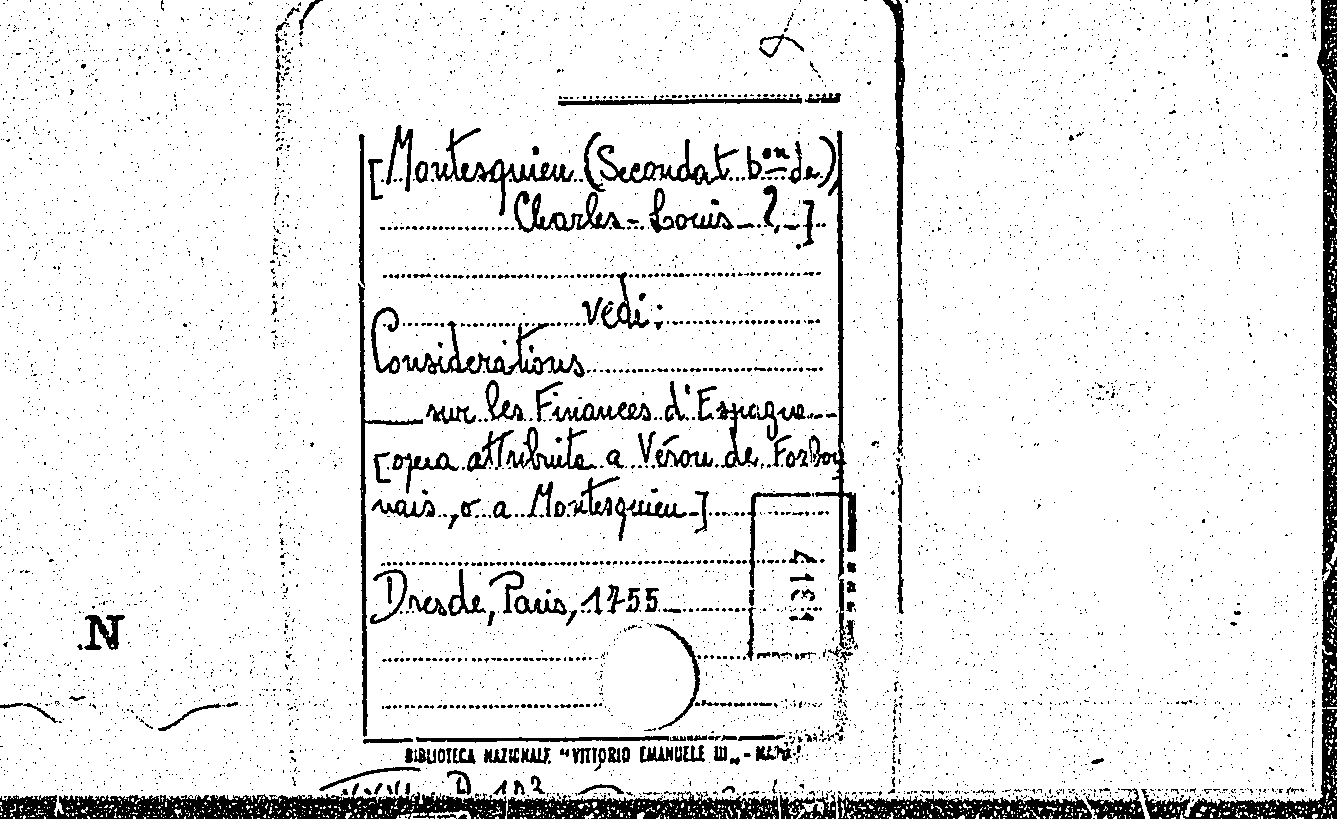 [Montesquieu (Secondat bon de)
Charles-Louis ?.-]
vedi:
Considerations
sur les Finances d'Espagne
[opera attribuita a Véron de Forbon
nais, o a Montesquieu-]
Dresde, Paris, 1755
N
BIBLIOTECA NAZIONALE "VITTORIO EMANUELE III„ -